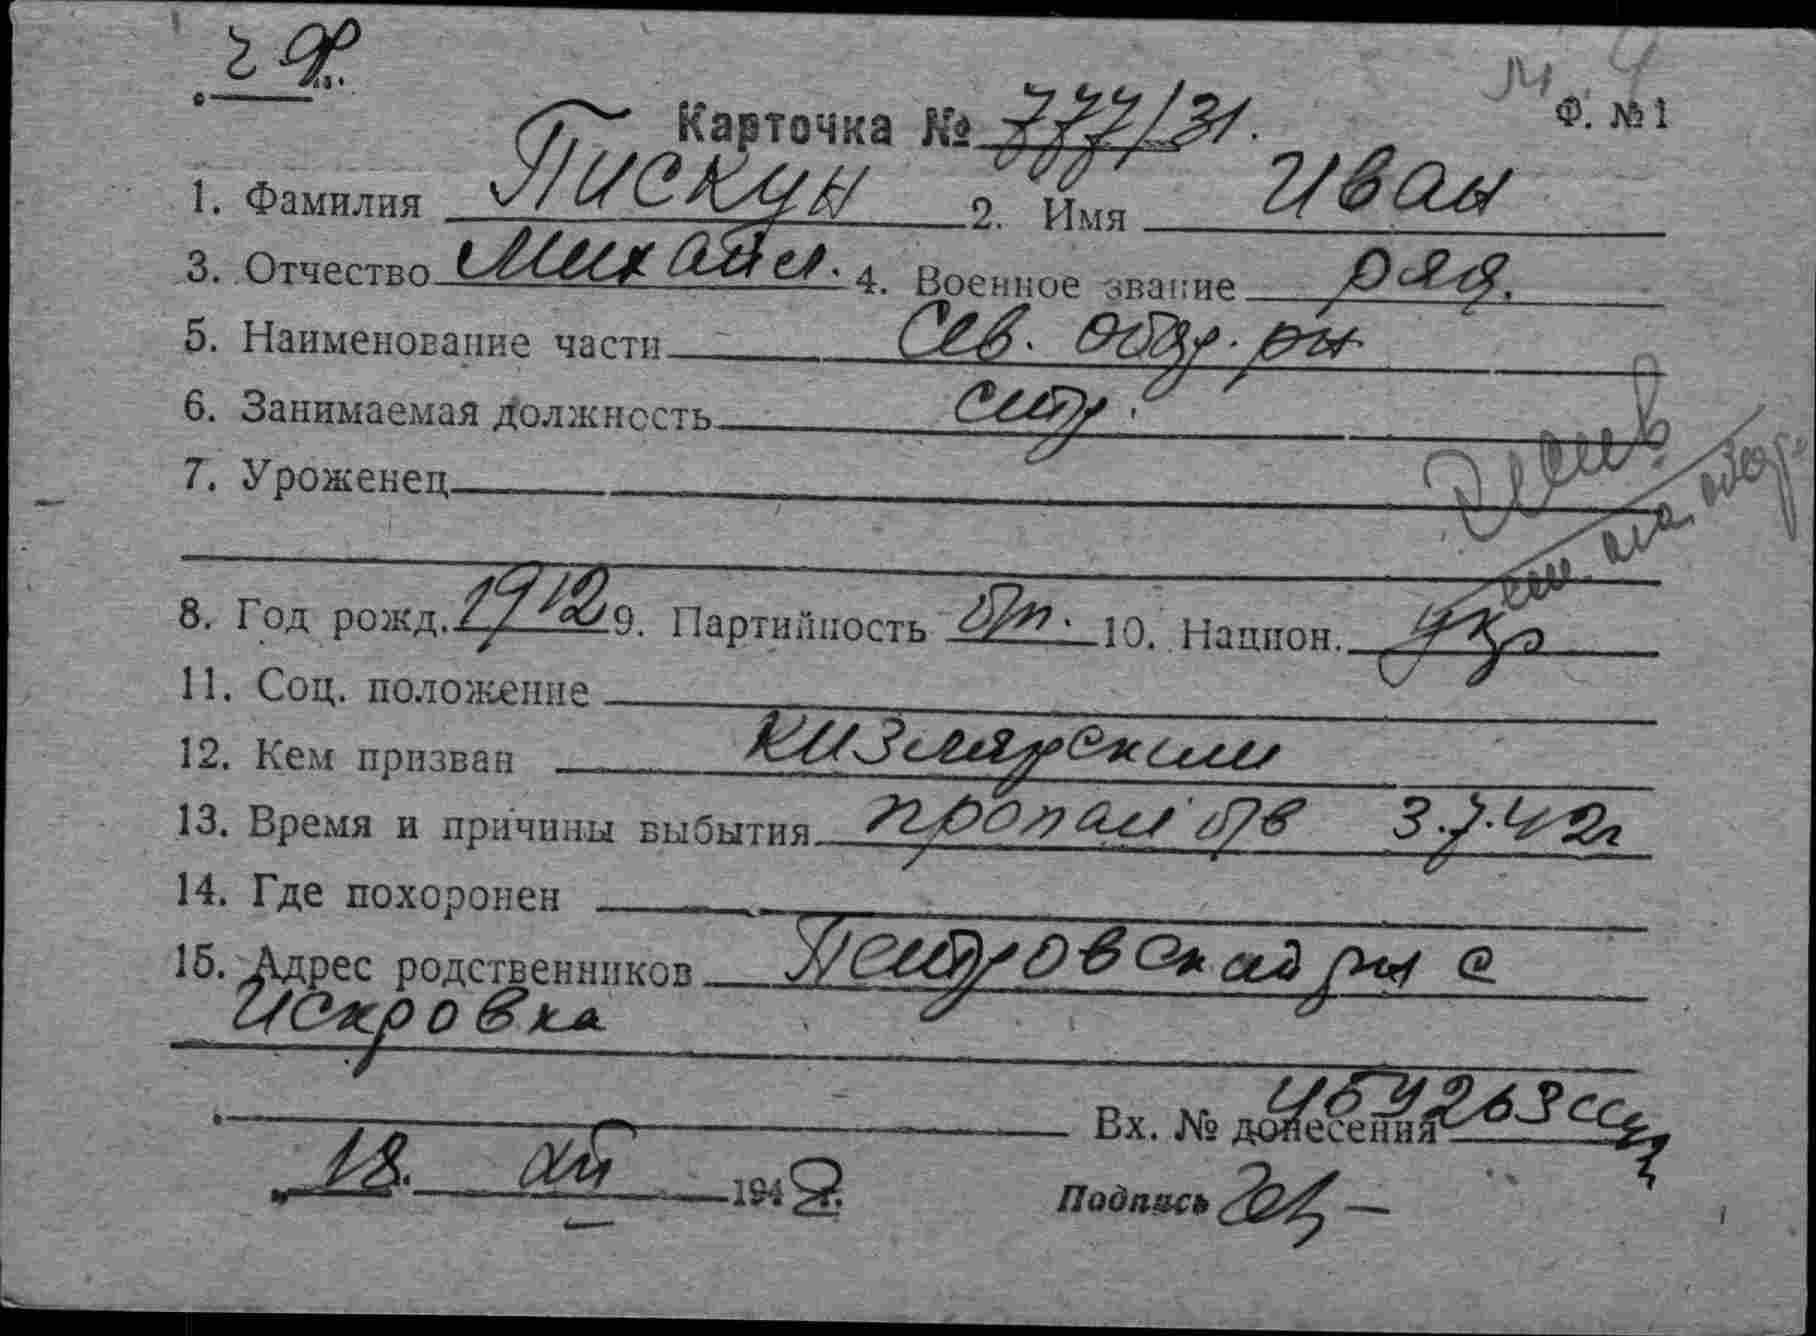 г Ф.
Карточка № 777/31.
Ф. №1
1. Фамилия Пискун 2. Имя Иван
3. Отчество Михайл. 4. Военное звание ряд.
5. Наименование части Сев. обор. рн
6. Занимаемая должность стр.
7. Уроженец
8. Год рожд. 1912 9. Партийность б/п. 10. Национ. укр
11. Соц. положение
12. Кем призван Кизлярским
13. Время и причины выбытия пропал б/в 3.7.42г
14. Где похоронен
15. Адрес родственников Петровский рн с
Искровка
Вх. № донесения
18. 194 г.
Подпись